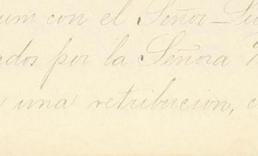 um con el Señor
dos por la Señora
una retribucion,